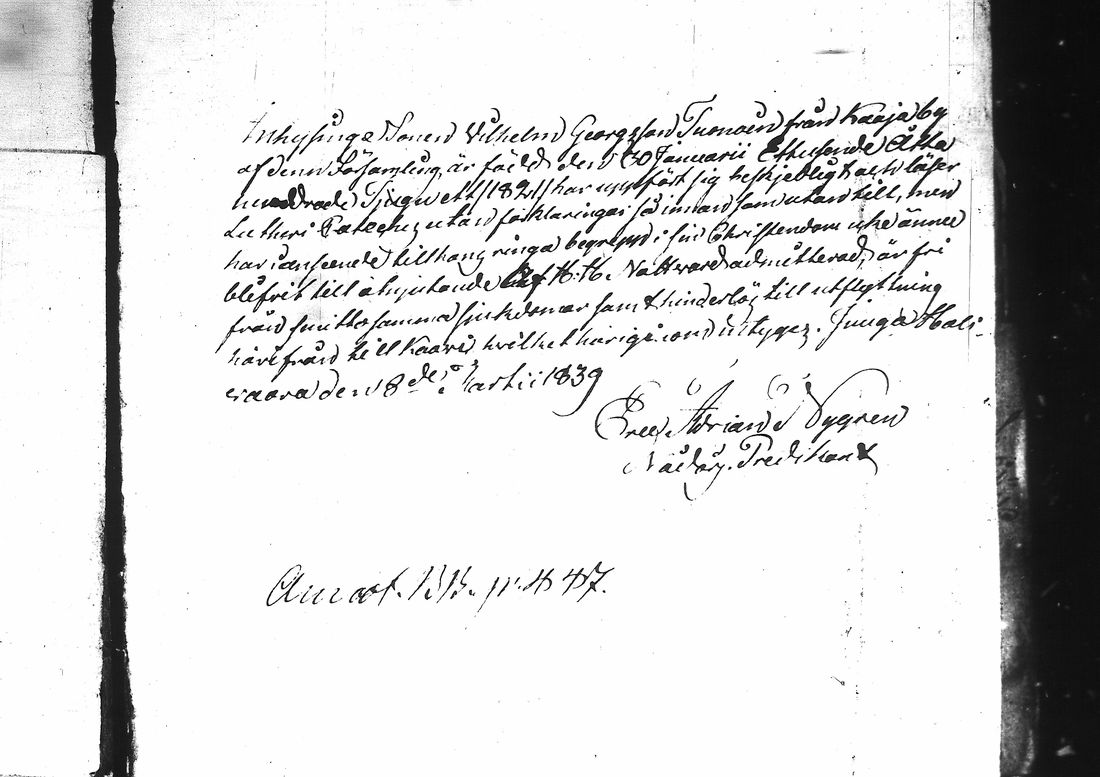 Inhysinge Sonen Wilhelm Georgsson Turnoin från Kaaja by
af denn Församling, är född den 30 Januarii Ettusende Åtta
hundrade Tjugu ett /1821/ har uppfört sig beskjedligt och läser
Lutheri Cateches utan förklaringar så innan som utan till, men
har i anseende till hans ringa begrepp i sin Christendom icke ännu
blifvit till åtnjutande af H. H. Nattvard admitterad, är fri
från smittosamma sjukdomar samt hinderlös till utflyttning
härifrån till Kaavi hvilket härigenom intygas. Juuga Hali-
vaara den 8de Martii 1839
Adrian Nygren
Nådårs Predikant
p. 447.